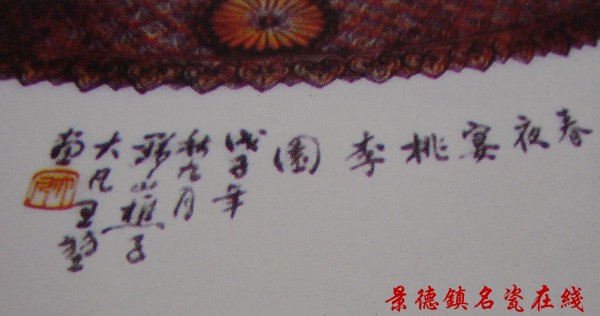 春夜宴桃李園
戊子年
秋九月
黟山樵子
大凡王堃
畫
景德鎮名瓷在綫